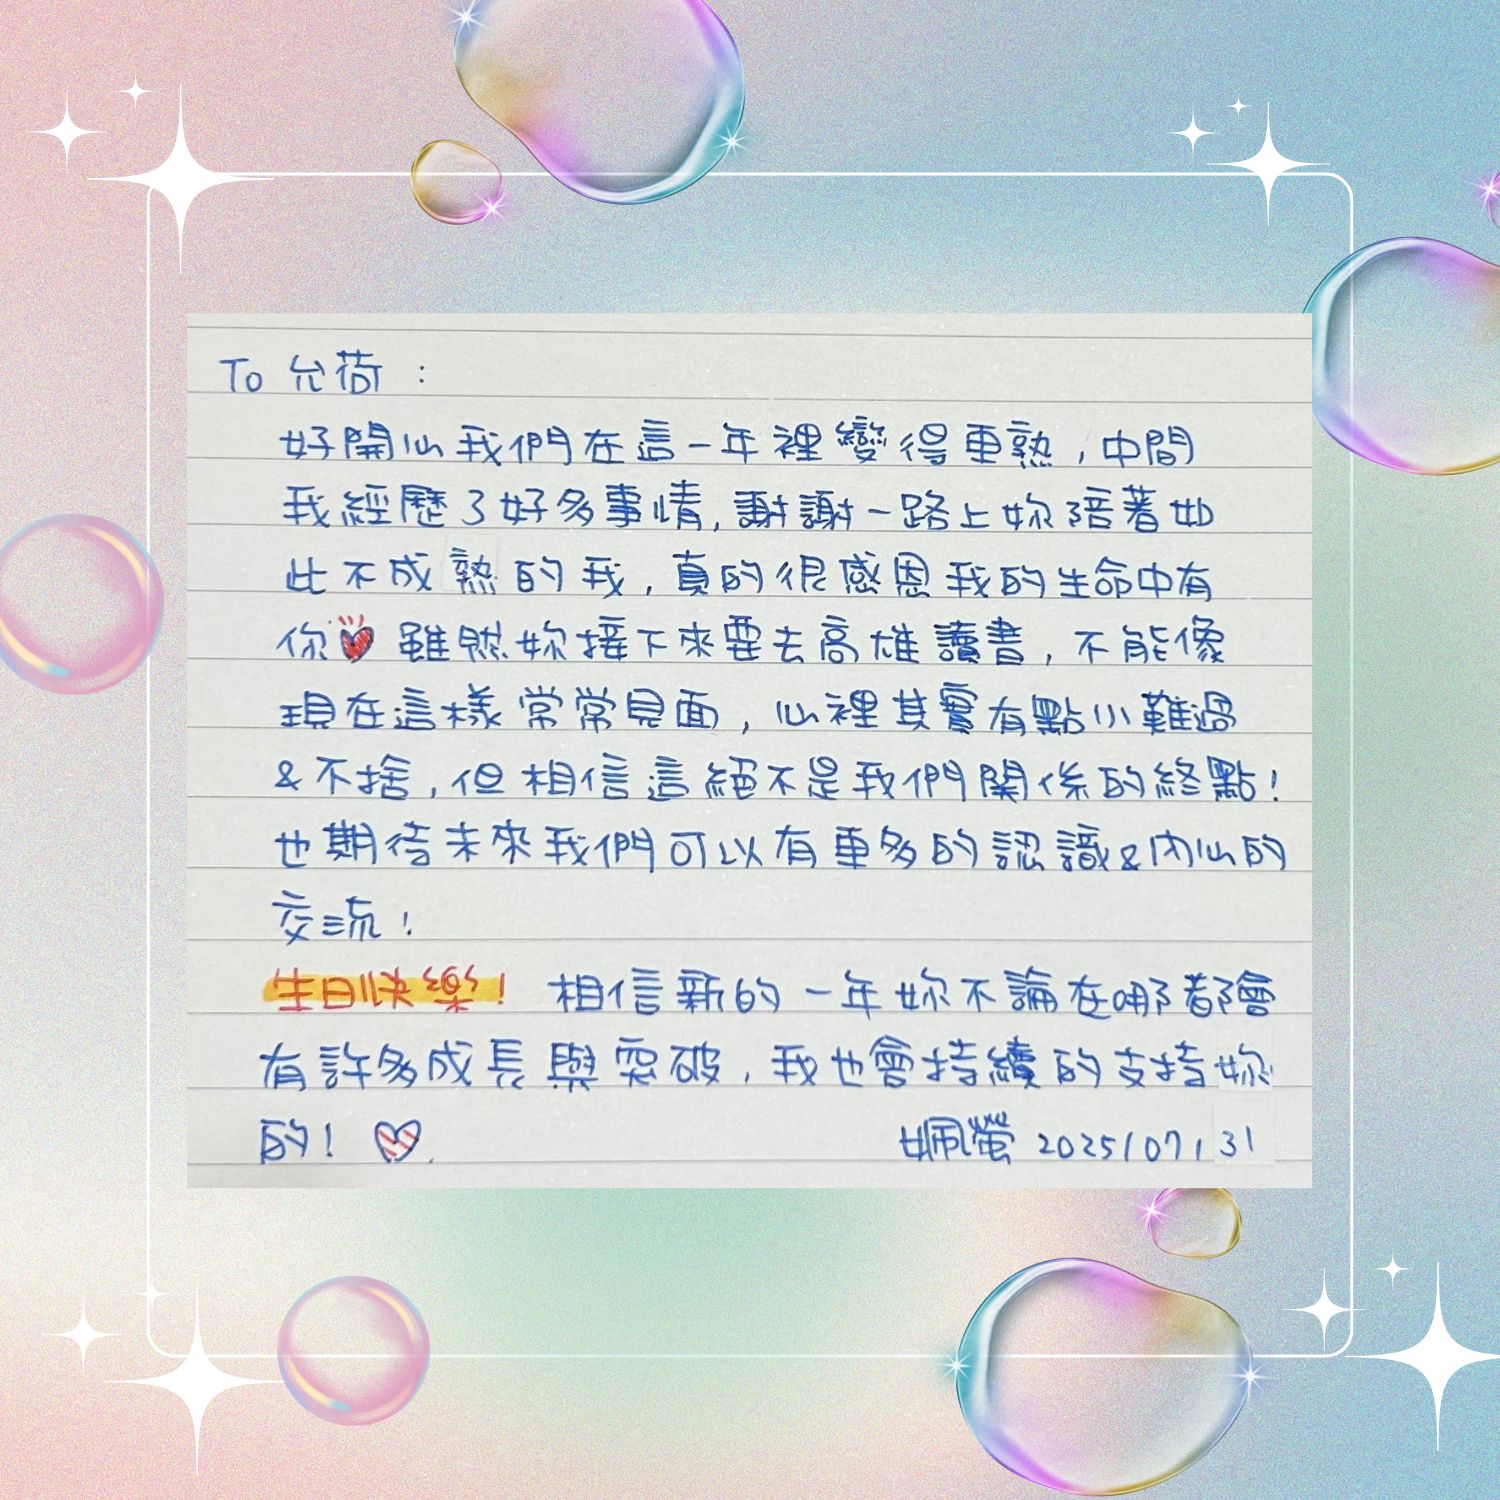 To 允荷：
好開心我們在這一年裡變得更熟，中間
我經歷了好多事情，謝謝一路上妳陪著如
此不成熟的我，真的很感恩我的生命中有
你 雖然妳接下來要去高雄讀書，不能像
現在這樣常常見面，心裡其實有點小難過
&不捨，但相信這絕不是我們關係的終點！
也期待未來我們可以有更多的認識&內心的
交流！
生日快樂！ 相信新的一年妳不論在哪都會
有許多成長與突破，我也會持續的支持妳
的！
姵螢 2025/07/31